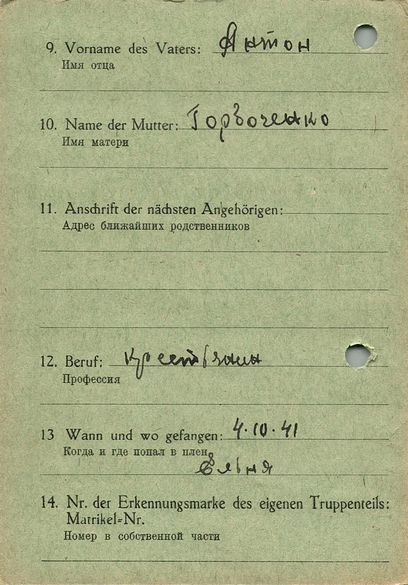 9. Vorname des Vaters: Антон
Имя отца
10. Name der Mutter: Горбоченко
Имя матери
11. Anschrift der nächsten Angehörigen:
Адрес ближайших родственников
12. Beruf:
Профессия
13 Wann und wo gefangen: 4·10·41
Когда и где попал в плен
Ельня
14. Nr. der Erkennungsmarke des eigenen Truppenteils:
Matrikel-Nr.
Номер в собственной части